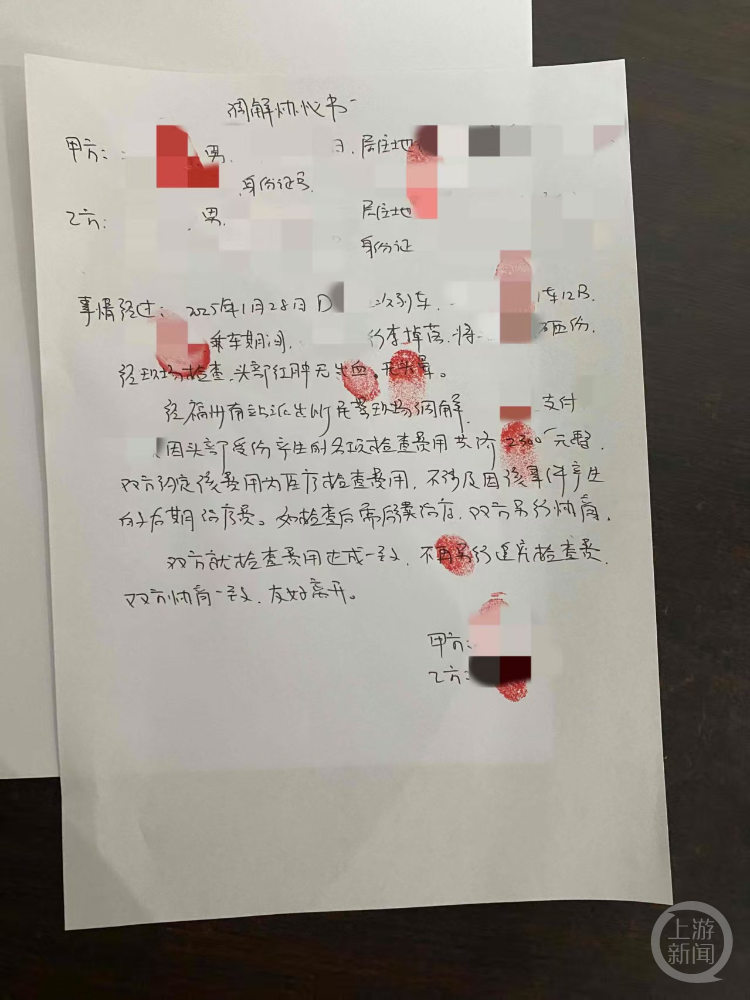 调解协议书
甲方: 男. 日. 居住地
身份证号.
乙方: 男. 居住地
身份证
事情经过: 2025年1月28日 D 次列车. 车12B.
乘车期间. 行李掉落. 将 砸伤.
经现场检查. 头部红肿无出血. 无头晕。
经福州南站派出所民警现场调解. 支付
因头部受伤产生的各项检查费用共济 2300元整.
双方约定该费用为医疗检查费用. 不涉及因该事件产生
的后期治疗费。如检查后需后续治疗. 双方另行协商.
双方就检查费用达成一致. 不再另行追究检查费.
双方协商一致. 友好离开。
甲方:
乙方:
上游新闻